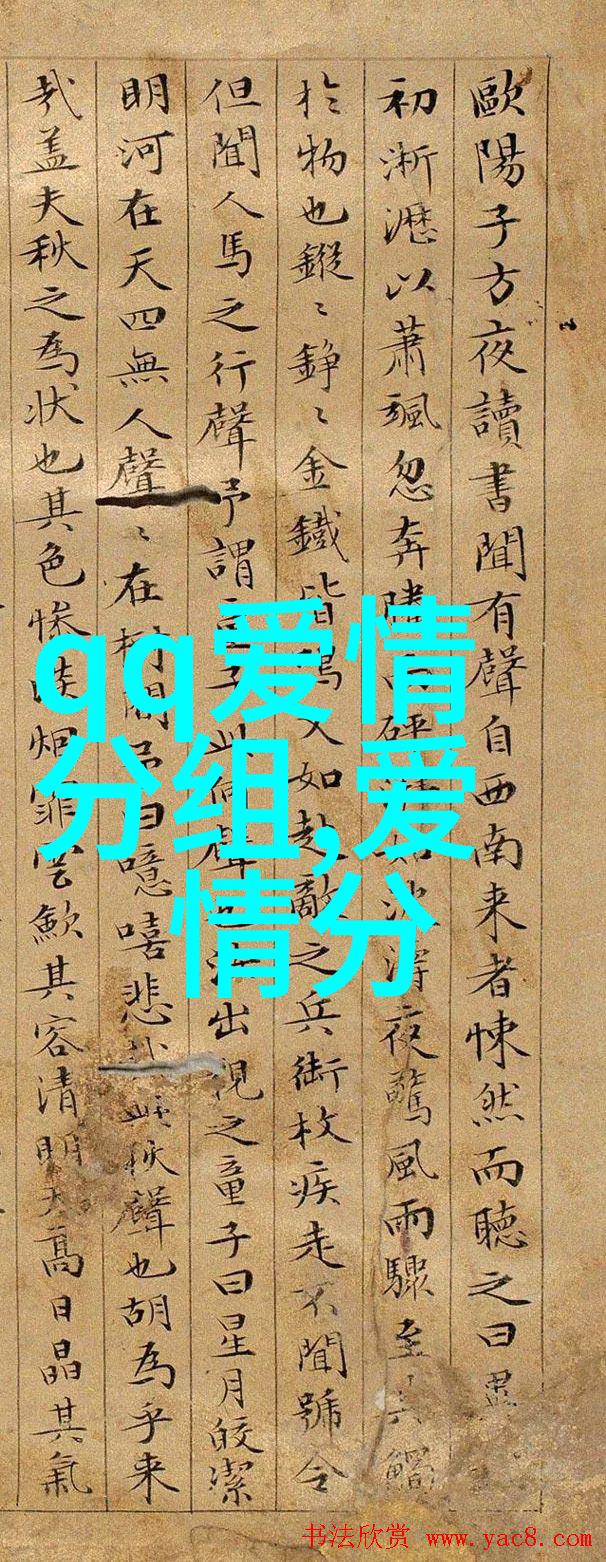 歐陽子方夜讀書聞有聲自西南来者悚然而聽之曰異
初淅瀝以蕭颯忽奔如波濤夜驚風雨驟至其觸
扵物也鏦〻錚〻金鐵皆鳴又如赴敵之兵銜枚疾走不聞號令
但聞人馬之行聲予謂童子此何聲也汝出視之童子曰星月皎潔
明河在天四無人聲〻在樹間予曰噫嘻悲此秋聲也胡為乎来
哉盖夫秋之為狀也其色慘烟霏雲歛其容清明天高日晶其氣
qq爱情
分组,爱
情分
书法欣赏 www.yac8.com